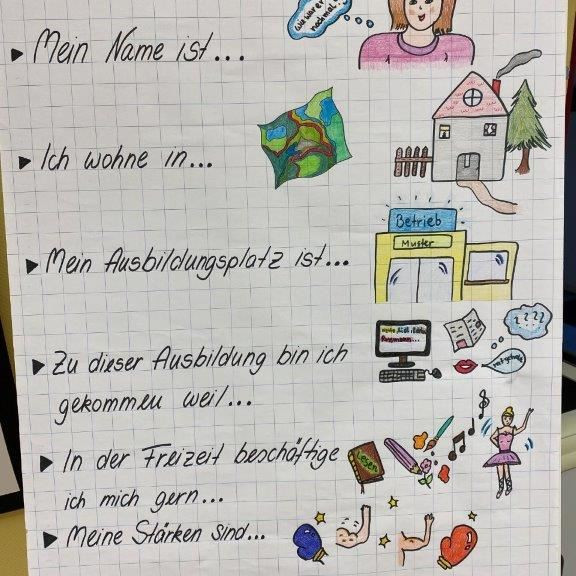 ► Mein Name ist...
► Ich wohne in...
Betrieb
Muster
► Mein Ausbildungsplatz ist...
????
► Zu dieser Ausbildung bin ich
gekommen weil...
► In der Freizeit beschäftige
ich mich gern...
Lesen
► Meine Stärken sind...